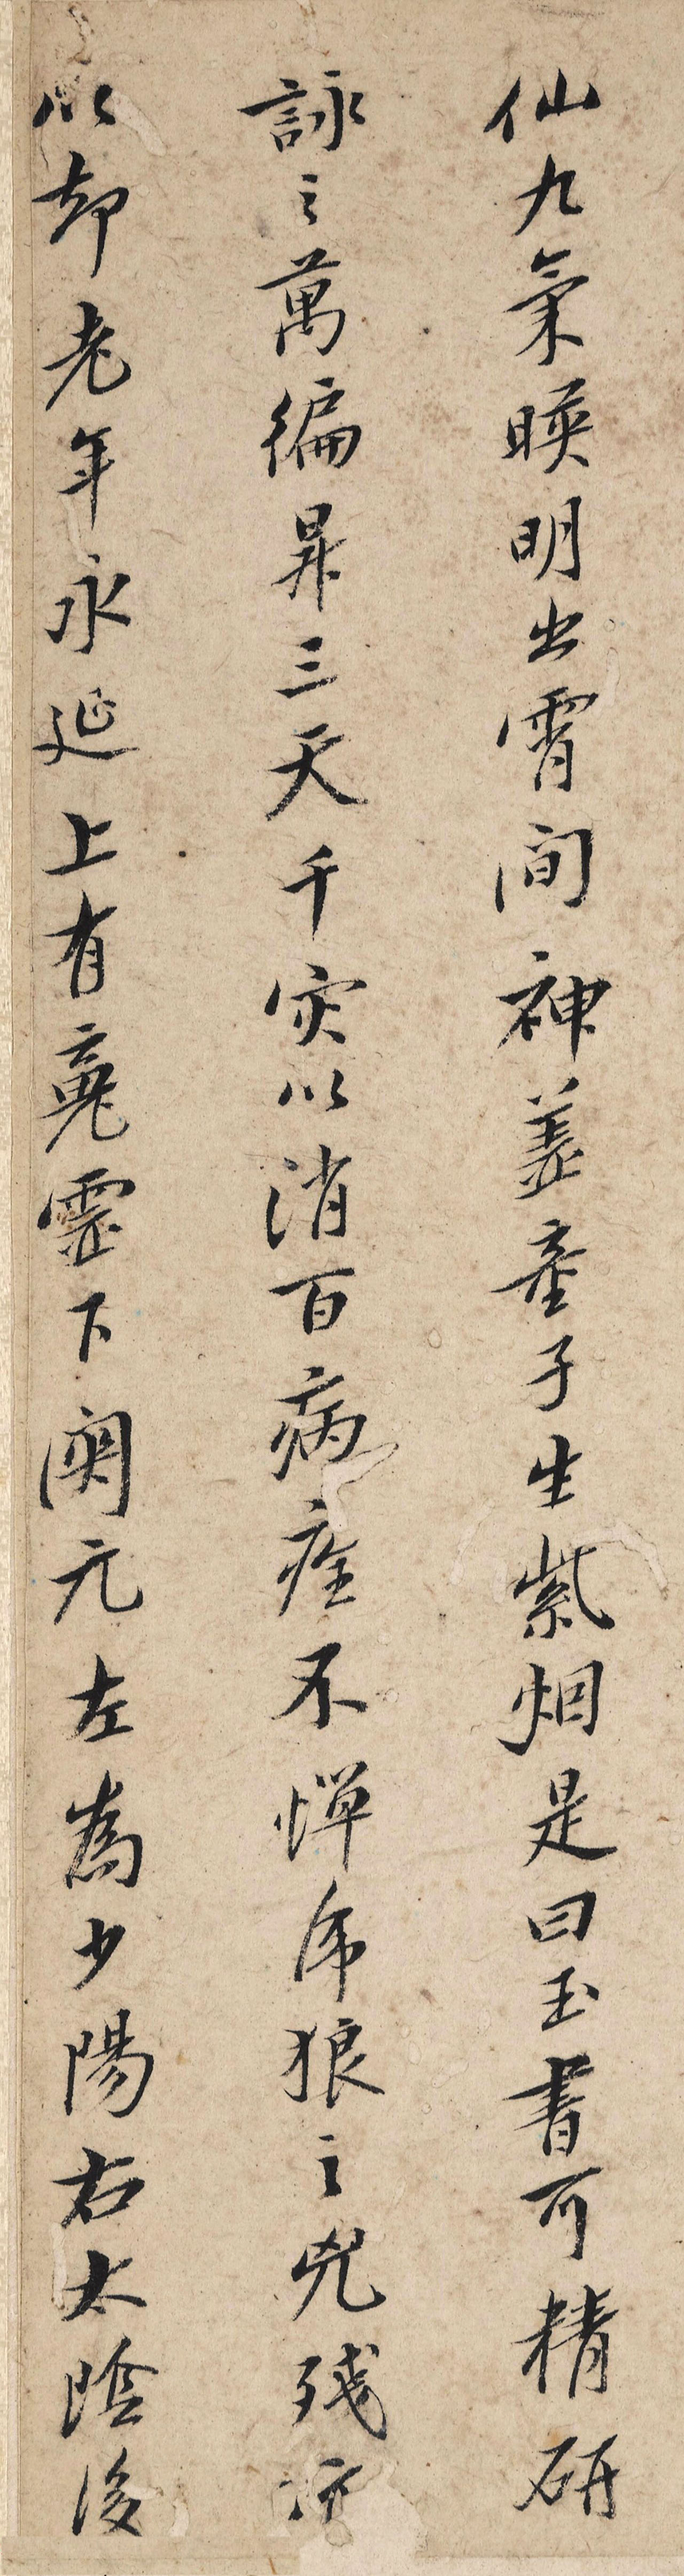 仙九氣暎明出霄間神盖童子生紫烟是曰玉書可精研
詠之萬徧昇三天千灾以消百病痊不憚虎狼之兇殘亦
以却老年永延上有䰟靈下関元左為少陽右太陰後